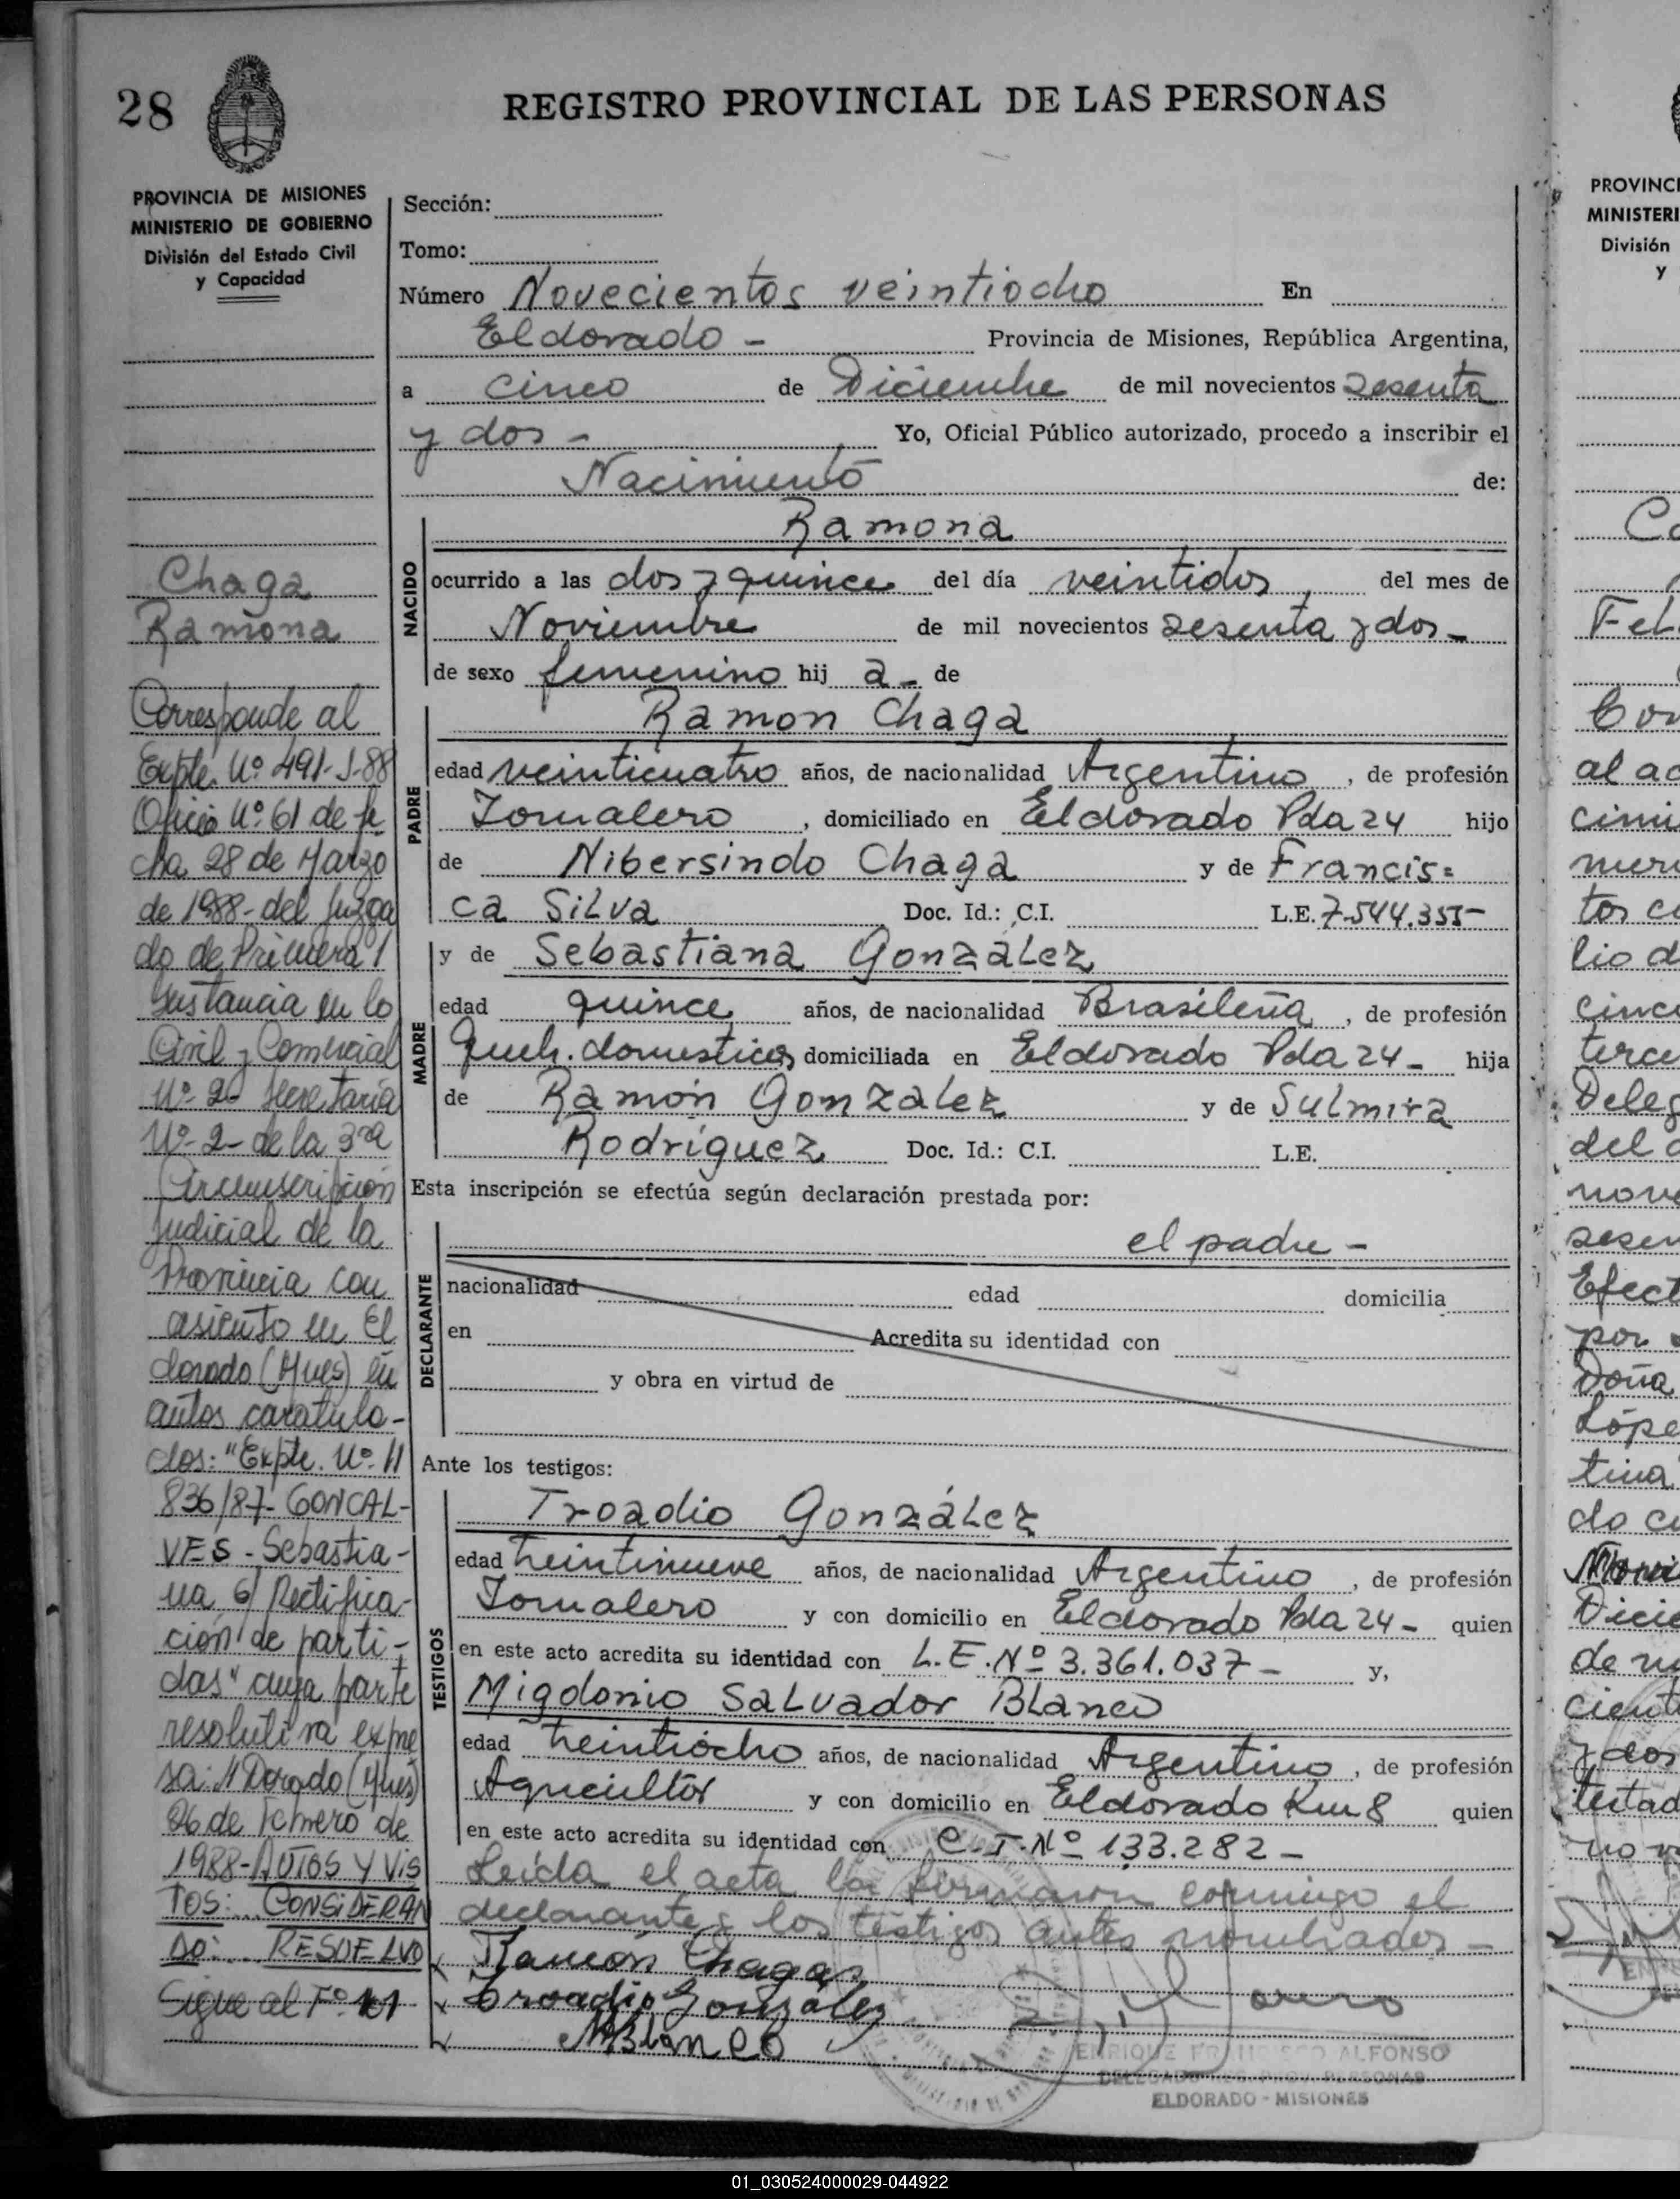 28
REGISTRO PROVINCIAL DE LAS PERSONAS
PROVINCIA DE MISIONES
MINISTERIO DE GOBIERNO
División del Estado Civil
y Capacidad
Chaga
Ramona
Corresponde al
Expte. Nº 491-J-88
Oficio Nº 61 de fe
cha 28 de Marzo
de 1988- del Juzga
do de Primera I
nstancia en lo
Civil y Comercial
Nº 2- Secretaría
Nº 2- de la 3ra
Circunscripción
Judicial de la
Provincia con
asiento en El
dorado (Mnes) en
autos caratula-
dos: "Expte. Nº 11
836/87- GONCAL-
VES - Sebastia-
na s/ Rectifica-
ción de parti-
das" cuya parte
resolutiva expre
sa: "Dorado (Mnes)
26 de Febrero de
1988- AUTOS Y VIS
TOS:... CONSIDERAN
DO:... RESUELVO
Sigue al Fº
Sección:
Tomo:
Número Novecientos veintiocho En
Eldorado - Provincia de Misiones, República Argentina,
a cinco de Diciembre de mil novecientos sesenta
y dos - Yo, Oficial Público autorizado, procedo a inscribir el
Nacimiento de:
NACIDO
Ramona
ocurrido a las dos y quince del día veintidos del mes de
Noviembre de mil novecientos sesenta y dos -
de sexo femenino hij a - de
PADRE
Ramon Chaga
edad veinticuatro años, de nacionalidad Argentino, de profesión
Jornalero, domiciliado en Eldorado Pda 24 hijo
de Nibersindo Chaga y de Francis=
ca Silva Doc. Id.: C.I. L.E. 7.544.355-
MADRE
y de Sebastiana González
edad quince años, de nacionalidad Brasileña, de profesión
Queh. domesticos domiciliada en Eldorado Pda 24 - hija
de Ramón Gonzalez y de Sulmira
Rodríguez Doc. Id.: C.I. L.E.
Esta inscripción se efectúa según declaración prestada por:
DECLARANTE
el padre -
nacionalidad edad domicilia
en Acredita su identidad con
y obra en virtud de
Ante los testigos:
TESTIGOS
Troadio González
edad treintinueve años, de nacionalidad Argentino, de profesión
Jornalero y con domicilio en Eldorado Pda 24 - quien
en este acto acredita su identidad con L.E. Nº 3.361.037 - y,
Migdonio Salvador Blanco
edad treintiocho años, de nacionalidad Argentino, de profesión
Agricultor y con domicilio en Eldorado Km 8 quien
en este acto acredita su identidad con C.I. Nº 133.282 -
Leida el acta la firmaron conmigo el
declarante y los testigos antes nombrados -
Ramón Chagas
Troadio González
MBlanco
ENRIQUE FRANCISCO ALFONSO
DELEGADO REG. PROV. PERSONAS
ELDORADO - MISIONES
PROVINCI
MINISTERI
División
y
Fel
al ac
cimi
tos c
lio d
cinc
terce
Deleg
del a
nove
sesen
Efect
por
Doña
Lópe
tina
do c
Dicie
cient
y dos
testad
no
01_030524000029-044922